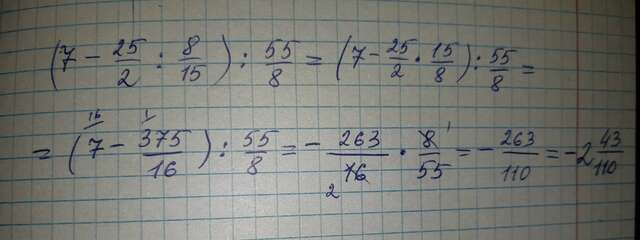 (7 - 25/2 : 8/15) : 55/8 = (7 - 25/2 · 15/8) : 55/8 =
= (7^16/ - 375^1/ / 16) : 55/8 = - 263/16₂ · 8¹/55 = - 263/110 = -2 43/110